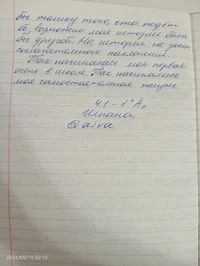 бы только того, что ждёт
её, возможно моя история была
бы другой. Но, история не знает
сослагательного наклонения.
Так начиналась моя первая
осень в школе. Так начиналась
моя самостоятельная жизнь.
41-1"А"
@aiva
2024/09/19 02:10